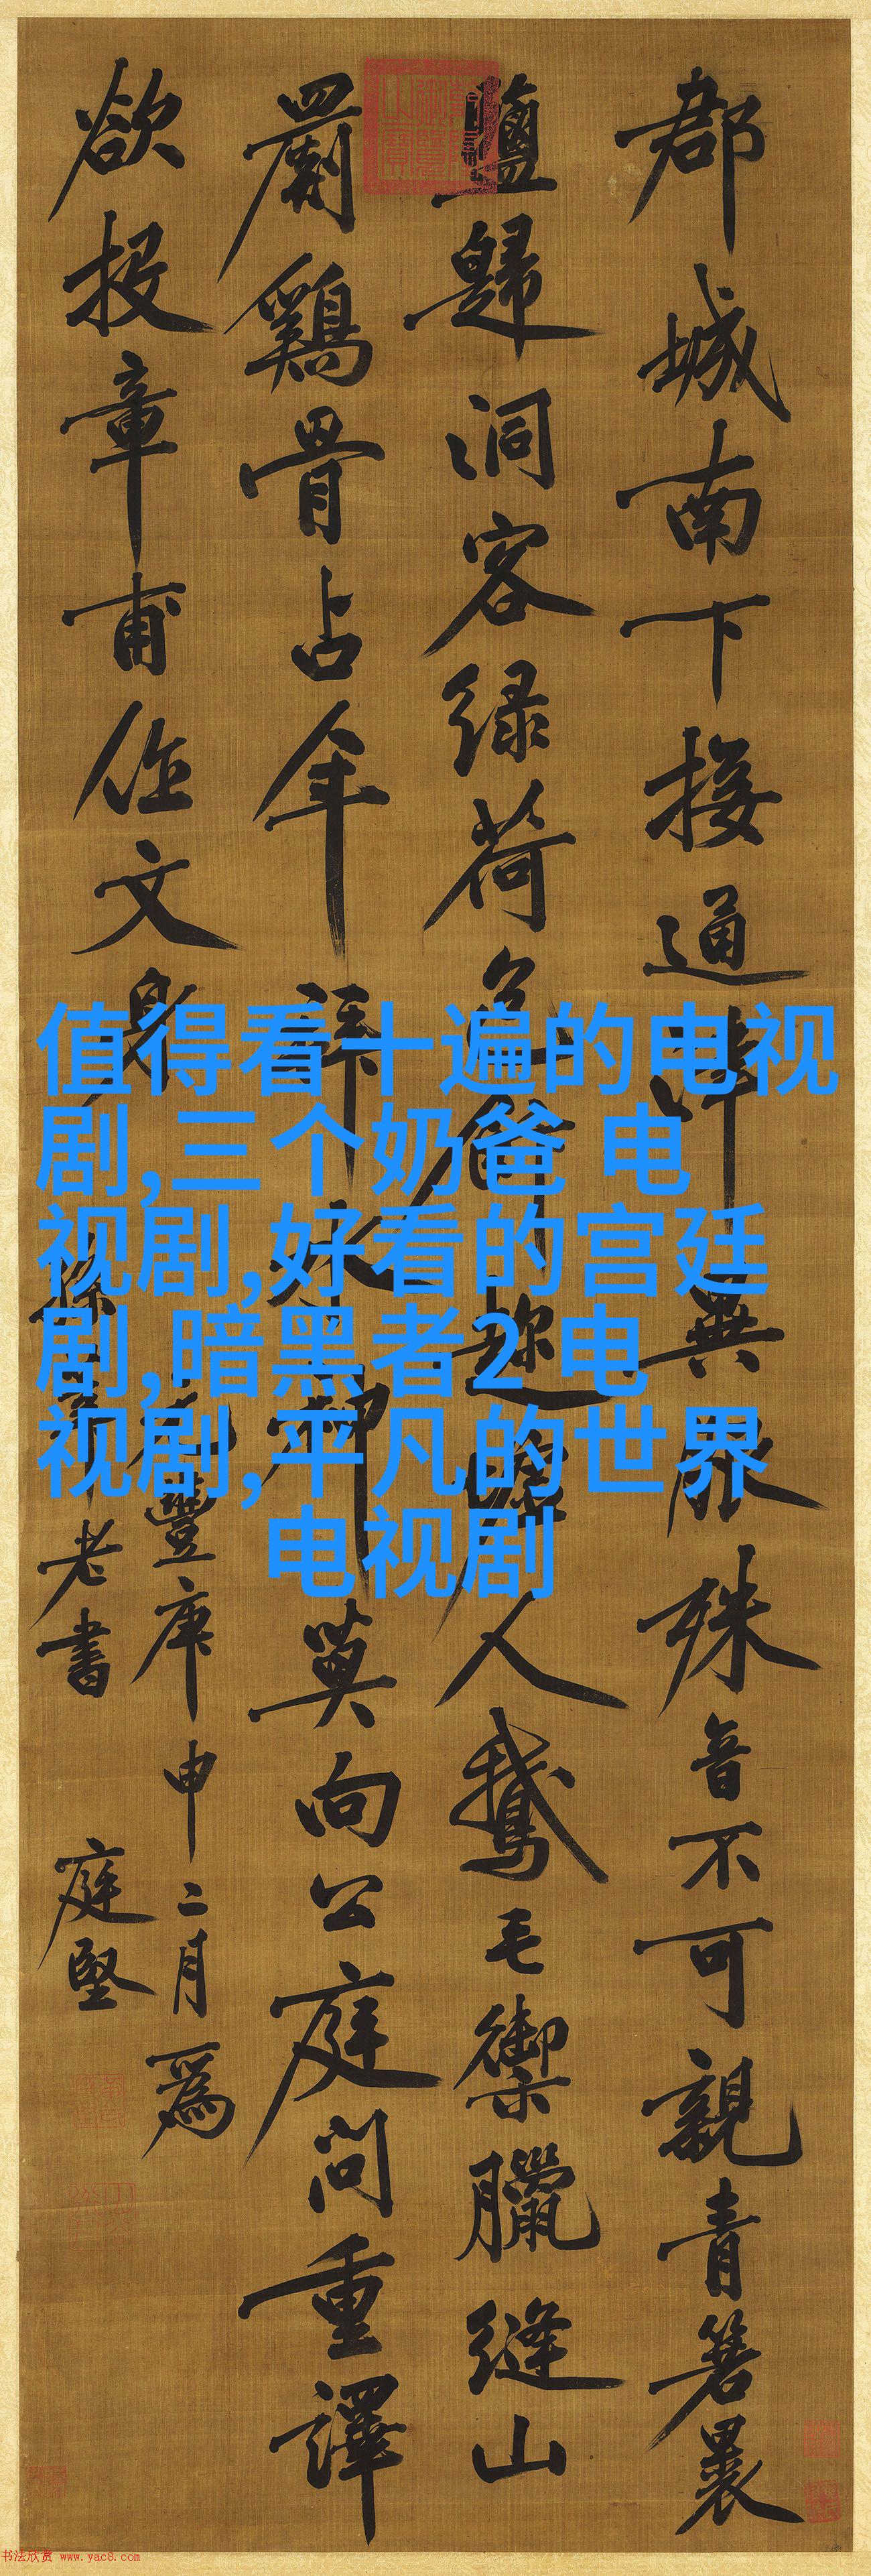 郡城南下接通津異服殊音不可親青箬裹
鹽歸洞客绿荷包飯趂墟人鵝毛禦臘縫山
罽鷄骨占年拜水神莫向公庭問重譯
欲投章甫作文身
元豐庚申二月爲
孫莘老書 庭堅
值得看十遍的电视
剧,三个奶爸 电
视剧,好看的宫廷
剧,暗黑者2 电
视剧,平凡的世界
电视剧
书法欣赏 www.yac8.com